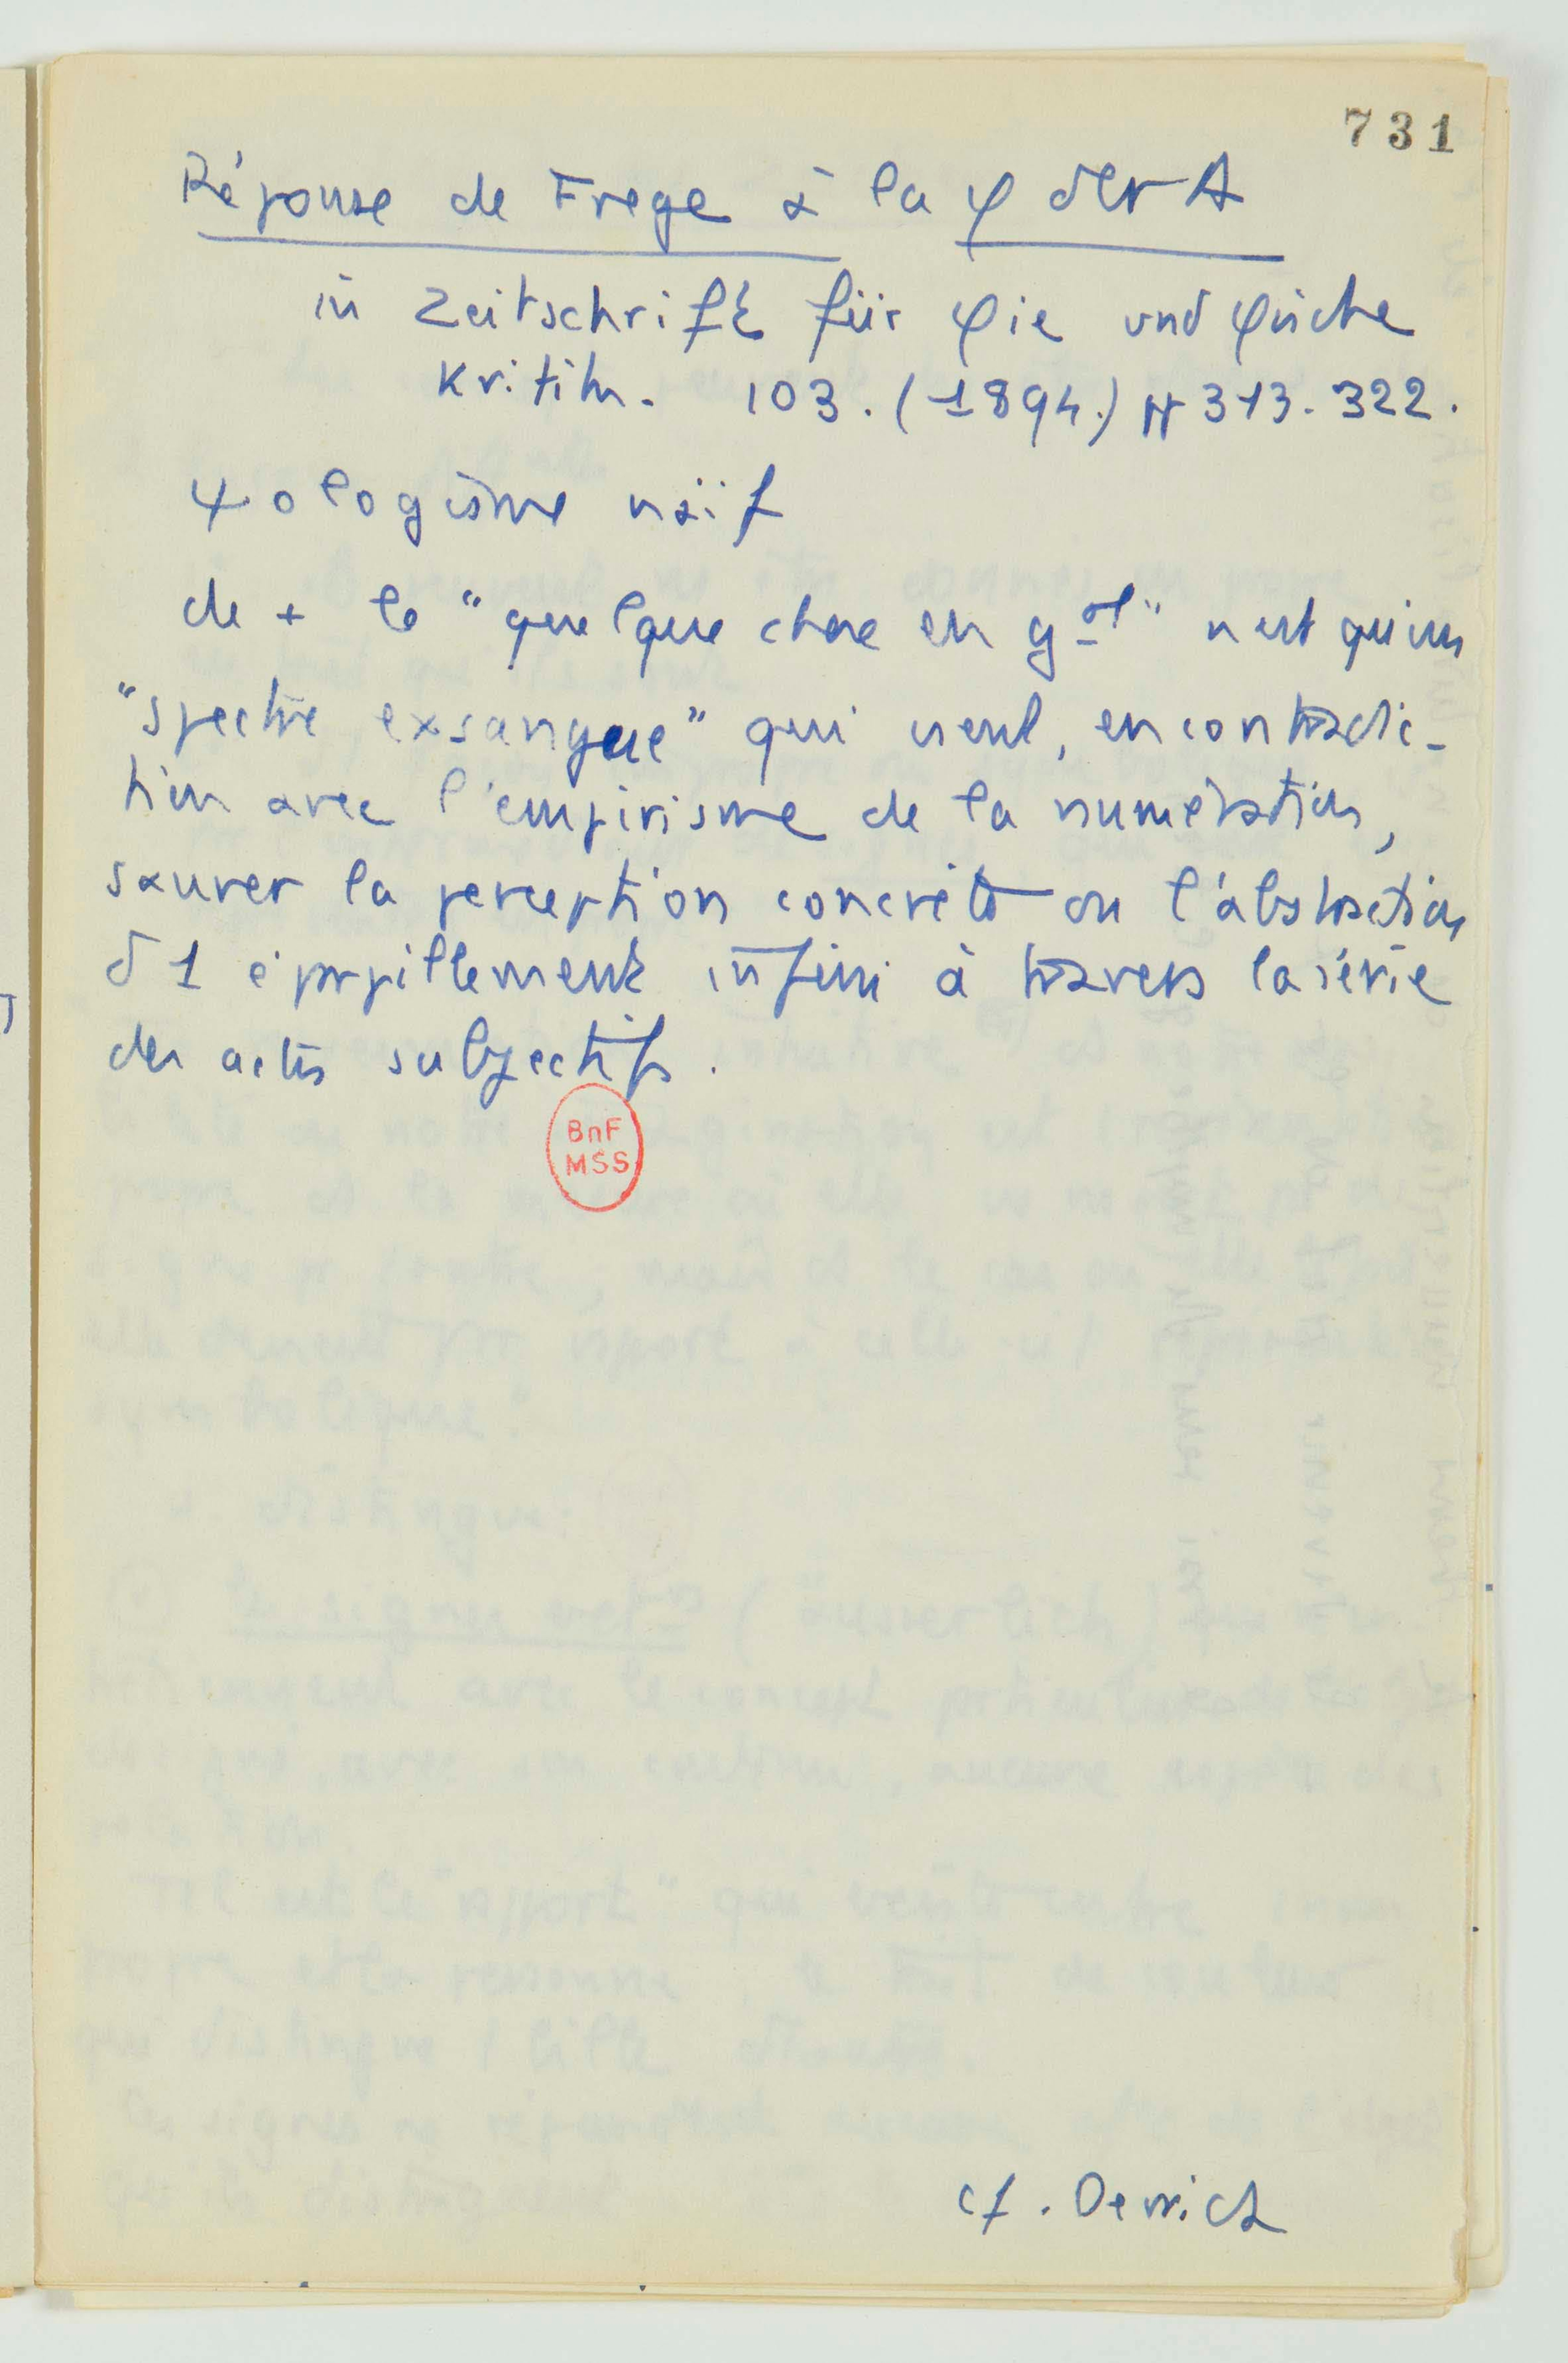 731
Réponse de Frege à la φ der A
in Zeitschrift für φie und φische
Kritik. 103. (1894.) pp 313-322.
ψologisme naïf
de + le "quelque chose en gal" n'est qu'un
"spectre exsangue" qui veut, en contradic-
tion avec l'empirisme de la numération,
sauver la perception concrète ou l'abstraction
d 1 éparpillement infini à travers la série
des actes subjectifs.
BnF
MSS
cf. Derrida